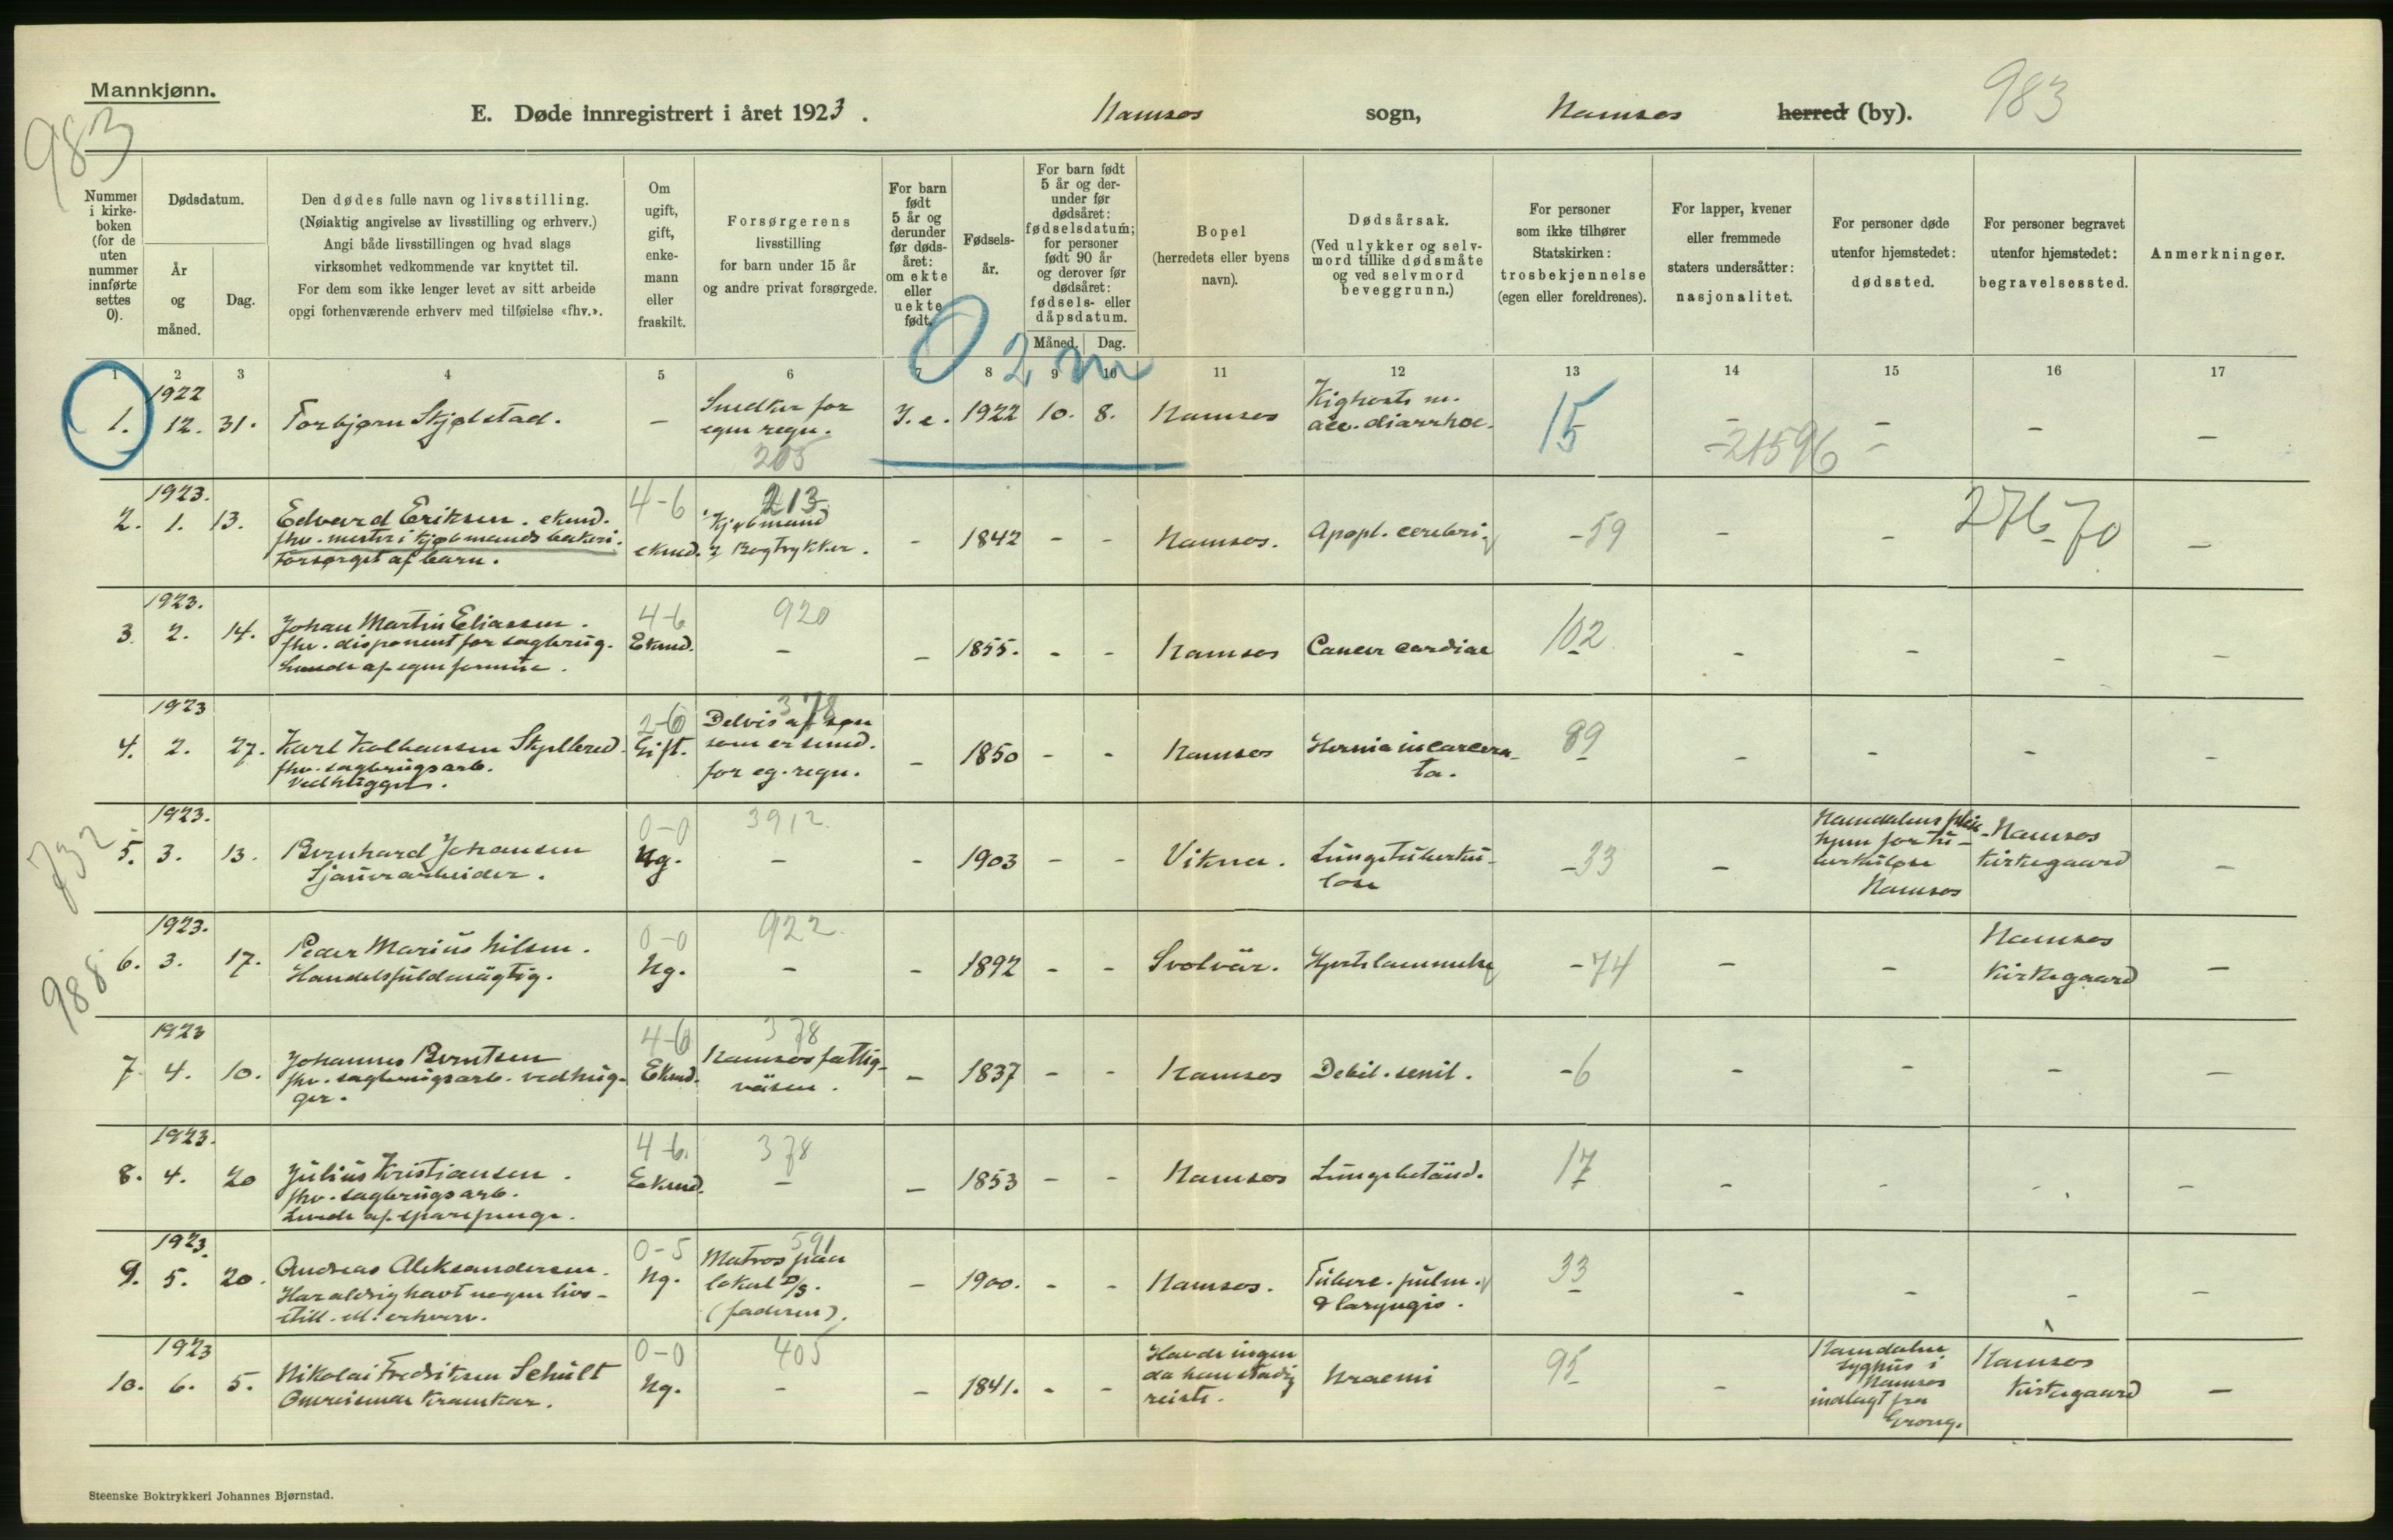 Mannkjønn.
E. Døde innregistrert i året 1923.
Namsos sogn, Namsos herred (by).
983
983
Nummer i kirkeboken (for de uten nummer innførte settes 0).
Dødsdatum.
År og måned.
Dag.
Den dødes fulle navn og livsstilling.
(Nøiaktig angivelse av livsstilling og erhverv.)
Angi både livsstillingen og hvad slags
virksomhet vedkommende var knyttet til.
For dem som ikke lenger levet av sitt arbeide
opgi forhenværende erhverv med tilføielse «fhv.».
Om ugift, gift, enkemann eller fraskilt.
Forsørgerens
livsstilling
for barn under 15 år
og andre privat forsørgede.
For barn født 5 år og derunder før dødsåret: om ekte eller uekte født.
Fødselsår.
For barn født 5 år og derunder før dødsåret: fødselsdatum; for personer født 90 år og derover før dødsåret: fødsels- eller dåpsdatum.
Måned.
Dag.
Bopel
(herredets eller byens
navn).
Dødsårsak.
(Ved ulykker og selv-
mord tillike dødsmåte
og ved selvmord
beveggrunn.)
For personer
som ikke tilhører
Statskirken:
trosbekjennelse
(egen eller foreldrenes).
For lapper, kvener
eller fremmede
staters undersåtter:
nasjonalitet.
For personer døde
utenfor hjemstedet:
dødssted.
For personer begravet
utenfor hjemstedet:
begravelsessted.
Anmerkninger.
0 2 m
1 2 3 4 5 6 7 8 9 10 11 12 13 14 15 16 17
1922
1. 12. 31. Torbjørn Skjølstad. – Snedker for
egen regn.
205
1922 10. 8. Namsos Kighoste m.
acc. diarrhoe. 15 – – – –
-21596 –
1923.
2. 1. 13. Edvard Eriksen. ekmd.
fhv. mester i kjøbmands bakeri.
Forsørget af barn.
4-6
ekmd.
213
Kjøbmand
& Bogtrykker.
– 1842 – – Namsos. Apopl. cerebri. -59 – – 276-70 –
1923.
3. 2. 14. Johan Martin Eliassen.
fhv. disponent for sagbrug.
Levede af egen formue.
4-6
Ekmd.
920
– – 1855. – – Namsos Cancer cardiae 102 – – – –
1923
4. 2. 27. Karl Kolbansen
fhv. sagbrugsarb.
Vedhugger.
2-6
Gift.
378
Delvis af søn
som er smed.
for eg. regn.
– 1850 – – Namsos Hernia incarcera-
ta. 89 – – – –
732
1923.
5. 3. 13. Bernhard Johansen
Sjauerarbeider.
0-0
Ug.
3912.
– – 1903 – – Vikna. Lungetuberku-
lose -33 –
Namdalens pleie-
hjem for tu-
berkuløse
Namsos
Namsos
Kirkegaard –
988
1923.
6. 3. 17. Peder Marius Nilsen.
Handelsfuldmægtig.
0-0
Ug.
922.
– – 1892 – – Svolvär. Hjertelammelse -74 – –
Namsos
Kirkegaard –
1923
7. 4. 10. Johannes Berntsen
fhv. sagbrugsarb. vedhug-
ger.
4-6
Ekmd.
378
Namsos fattig-
väsen.
– 1837 – – Namsos Debil. senil. -6 – – – –
1923.
8. 4. 20 Julius Kristiansen.
fhv. sagbrugsarb.
Levede af sparepenge.
4-6.
Ekmd.
378
– – 1853 – – Namsos Lungebetänd. 17 – – – –
1923.
9. 5. 20. Andreas Aleksandersen.
Har aldrig havt nogen livs-
still. ell. erhverv.
0-5
Ug.
591
Matros paa
lokal D/S.
(faderen).
– 1900. – – Namsos. Tuberc. pulm.
& laryngis. 33 – – – –
1923
10. 6. 5. Nikolai Fredriksen Schült
Omreisende Kramkar.
0-0
Ug.
405
– – 1841. – –
Havde ingen
da han stadig
reiste.
Uraemi 95 –
Namdalens
syghus i
Namsos
indlagt fra
Grong.
Namsos
Kirkegaard –
Steenske Boktrykkeri Johannes Bjørnstad.